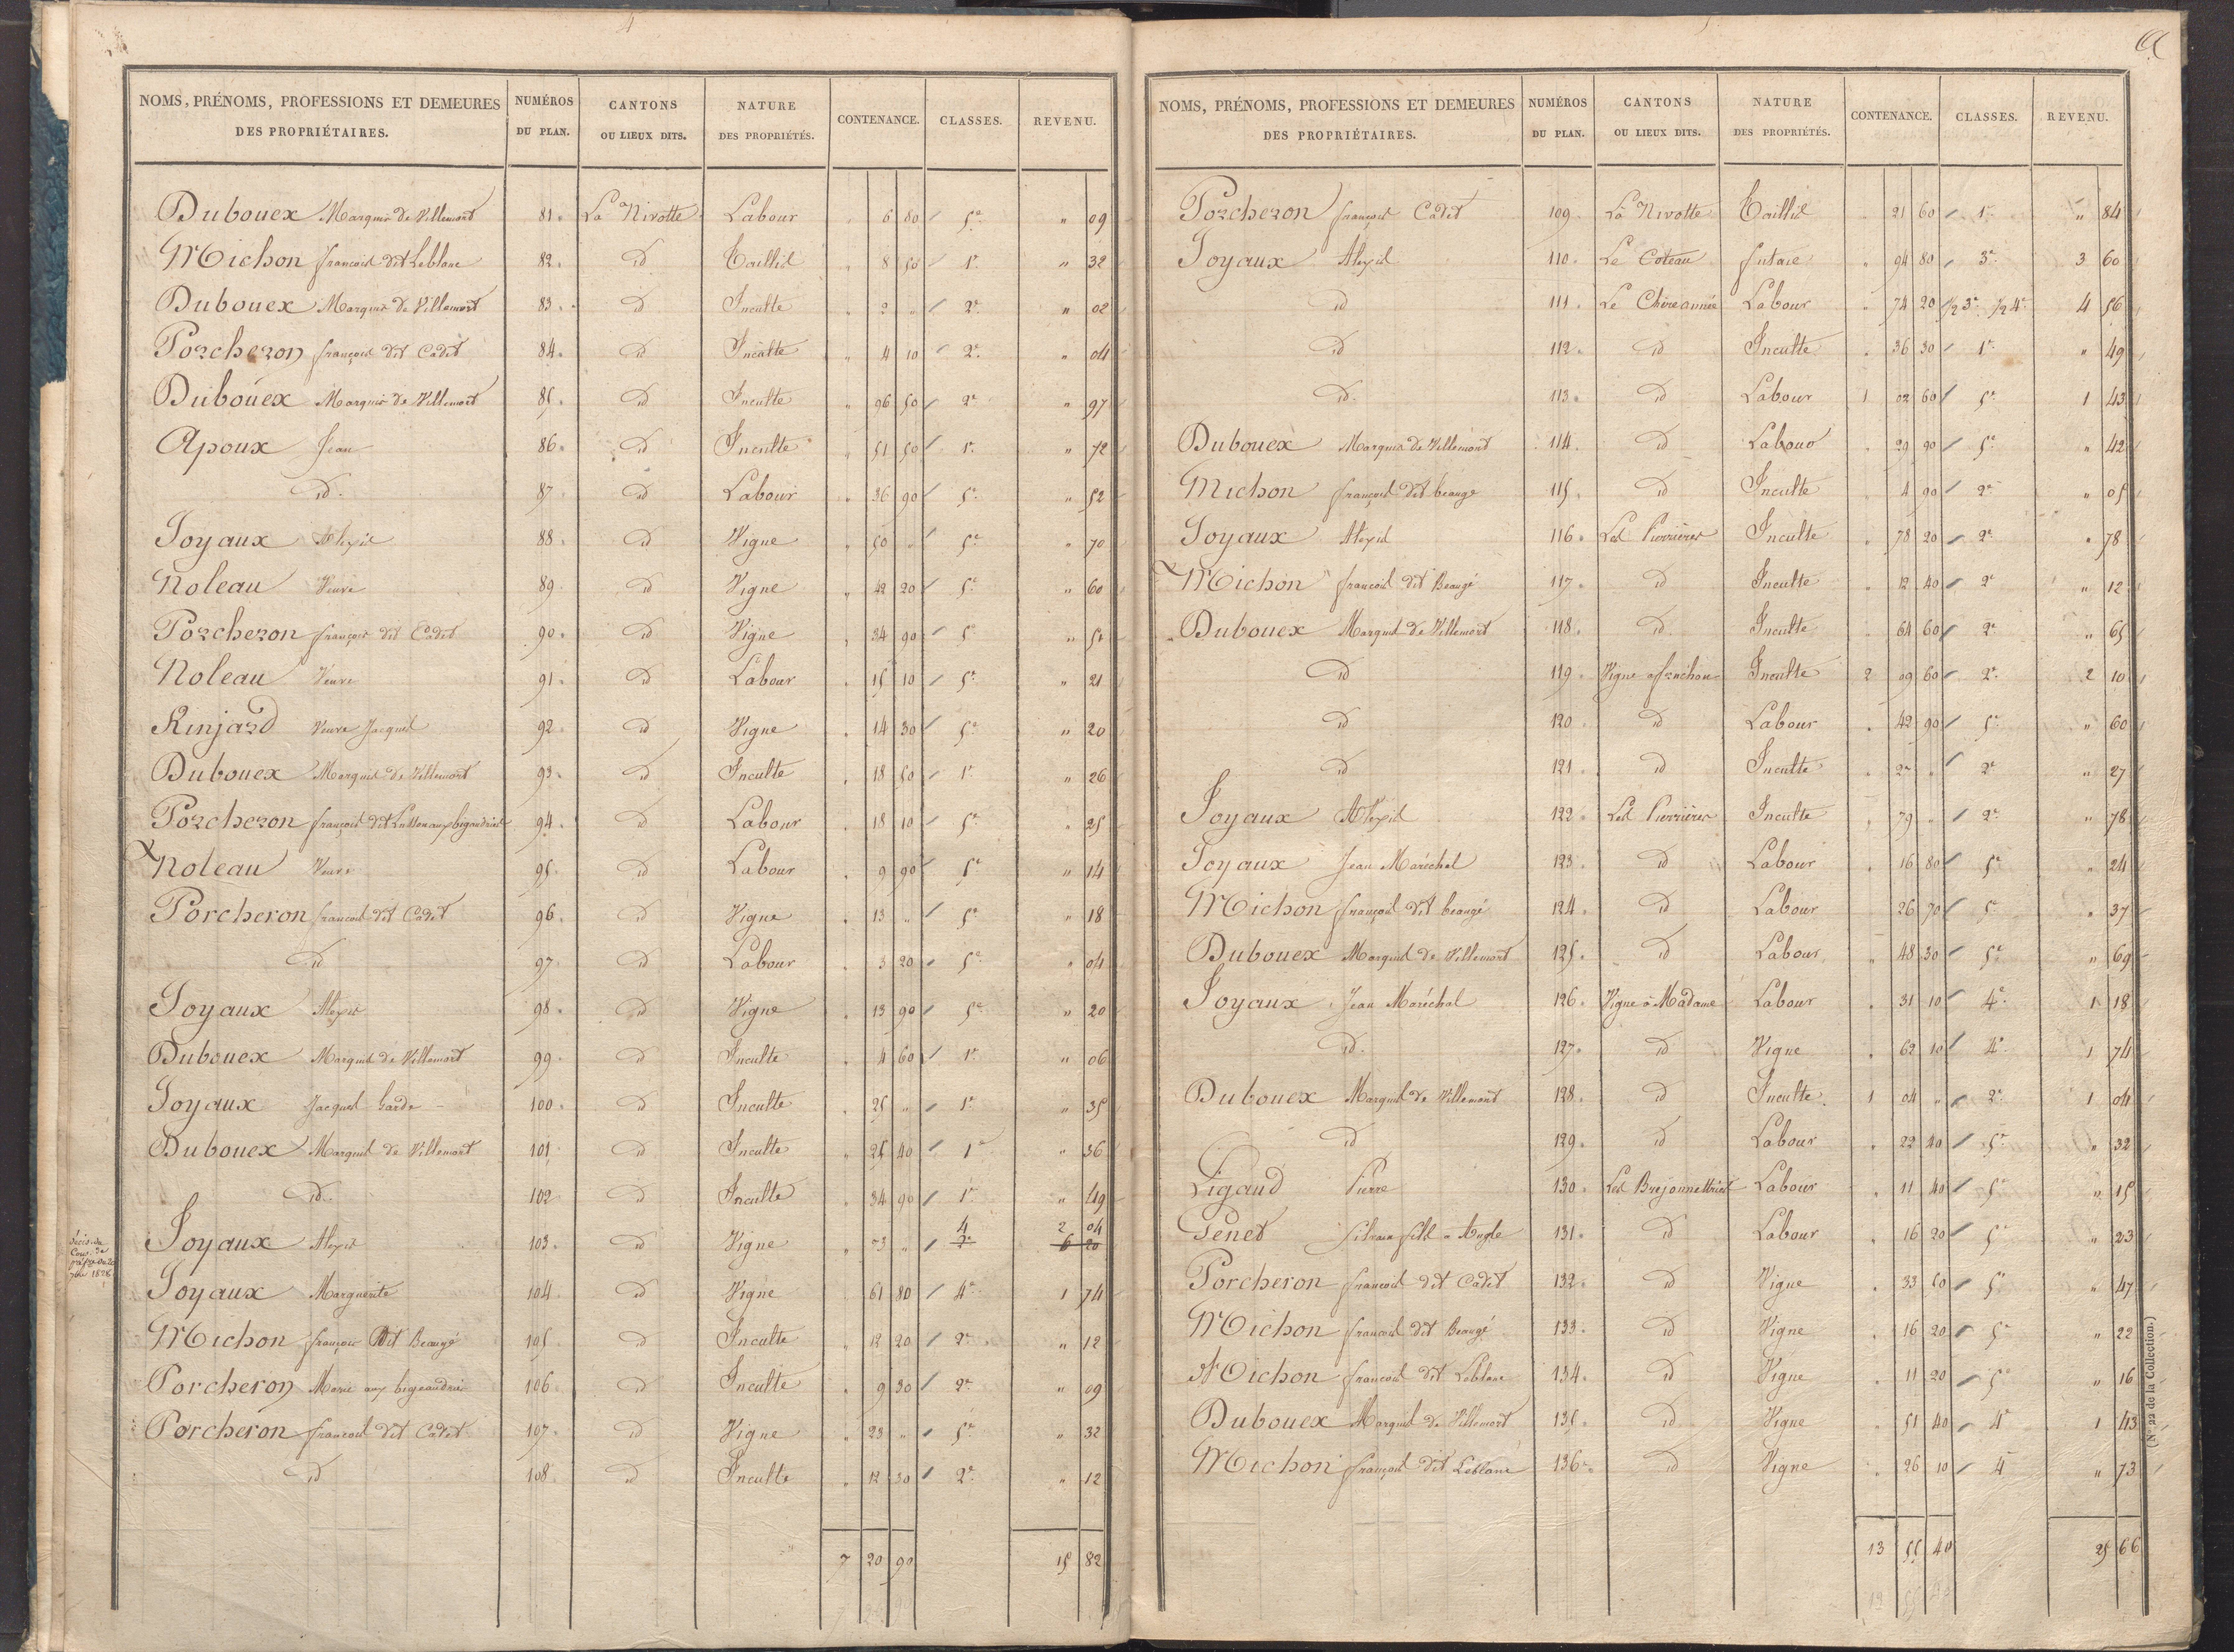 4
NOMS, PRÉNOMS, PROFESSIONS ET DEMEURES DES PROPRIÉTAIRES. NUMÉROS DU PLAN. CANTONS OU LIEUX DITS. NATURE DES PROPRIÉTÉS. CONTENANCE. CLASSES. REVENU.
Dubouex Marquis de Villemort 81 La Nivotte Labour " 6 80 5e " 09
Michon françois dit Leblanc 82 id Taillis " 8 50 1e " 32
Dubouex Marquis de Villemort 83 id Inculte " 2 " 2e " 02
Porcheron françois dit Cadet 84 id Inculte " 4 10 2e " 04
Dubouex Marquis de Villemort 85 id Inculte " 96 50 2e " 97
Apoux Jean 86 id Inculte " 51 50 1e " 72
id. 87 id Labour " 36 90 5e " 52
Joyaux Alexis 88 id Vigne " 50 " 5e " 70
Noleau Veuve 89 id Vigne " 42 20 5e " 60
Porcheron françois dit Cadet 90 id Vigne " 34 90 5e "
Noleau Veuve 91 id Labour " 15 10 5e " 21
Rinjard Veuve Jacques 92 id Vigne " 14 30 5e " 20
Dubouex Marquis de Villemort 93 id Inculte " 18 50 1e " 26
Porcheron françois dit aux bigaudries 94 id Labour " 18 10 5e " 25
Noleau Veuve 95 id Labour " 9 90 5e " 14
Porcheron françois dit Cadet 96 id Vigne " 13 " 5e " 18
id 97 id Labour " 3 20 5e " 04
Joyaux Alexis 98 id Vigne " 13 90 5e " 20
Dubouex Marquis de Villemort 99 id Inculte " 4 60 1e " 06
Joyaux Jacques Garde 100 id Inculte " 25 " 1e " 35
Dubouex Marquis de Villemort 101 id Inculte " 25 40 1e " 36
id. 102 id Inculte " 34 90 1e " 49
Joyaux Alexis 103 id Vigne " 73 " 4 2e 2 04 6 20
1828
Joyaux Marguerite 104 id Vigne " 61 80 4e 1 74
Michon françois Dit Beaugé 105 id Inculte " 12 20 2e " 12
Porcheron Marie aux bigeaudries 106 id Inculte " 9 30 2e " 09
Porcheron françois dit Cadet 107 id Vigne " 23 " 5e " 32
id 108 id Inculte " 12 30 2e " 12
7 20 90 15 82
NOMS, PRÉNOMS, PROFESSIONS ET DEMEURES DES PROPRIÉTAIRES. NUMÉROS DU PLAN. CANTONS OU LIEUX DITS. NATURE DES PROPRIÉTÉS. CONTENANCE. CLASSES. REVENU.
Porcheron françois Cadet 109 La Nivotte Taillis " 21 60 1e " 84
Joyaux Alexis 110 Le Coteau futaie " 94 80 3e 3 60
id 111 Labour " 74 20 1/2 3e 1/2 4e 4 56
id 112 id Inculte " 36 30 1e " 49
id. 113 id Labour 1 02 60 5e 1 43
Dubouex Marquis de Villemort 114 id Labour " 29 90 5e " 42
Michon françois dit beaugé 115 id Inculte " 4 90 2e " 05
Joyaux Alexis 116 Les Pierrières Inculte " 78 20 2e " 78
Michon françois dit Beaugé 117 id Inculte " 12 40 2e " 12
Dubouex Marquis de Villemort 118 id Inculte " 64 60 2e " 65
id 119 Vigne Inculte 2 09 60 2e 2 10
id 120 id Labour " 42 90 5e " 60
id 121 id Inculte " 27 " 2e " 27
Joyaux Alexis 122 Les Pierrières Inculte " 79 " 2e " 78
Joyaux Jean Maréchal 123 id Labour " 16 80 5e " 24
Michon françois dit beaugé 124 id Labour " 26 70 5e " 37
Dubouex Marquis de Villemort 125 id Labour " 48 30 5e " 69
Joyaux Jean Maréchal 126 Vigne à Madame Labour " 31 10 4e 1 18
id. 127 id Vigne " 62 10 4e 1 74
Dubouex Marquis de Villemort 128 id Inculte 1 04 " 2e 1 04
id 129 id Labour " 22 40 5e " 32
Ligaud Pierre 130 Labour " 11 40 5e " 15
Penet Silvain fils à Angle 131 id Labour " 16 20 5e " 23
Porcheron françois dit Cadet 132 id Vigne " 33 50 5e " 47
Michon françois dit Beaugé 133 id Vigne " 16 20 5e " 22
Michon françois dit Leblanc 134 id Vigne " 11 20 5e " 16
Dubouex Marquis de Villemort 135 id Vigne " 51 40 4e 1 43
Michon françois dit Leblanc 136 id Vigne " 26 10 4e " 73
13 55 40 25 66
(N° 22 de la Collection.)